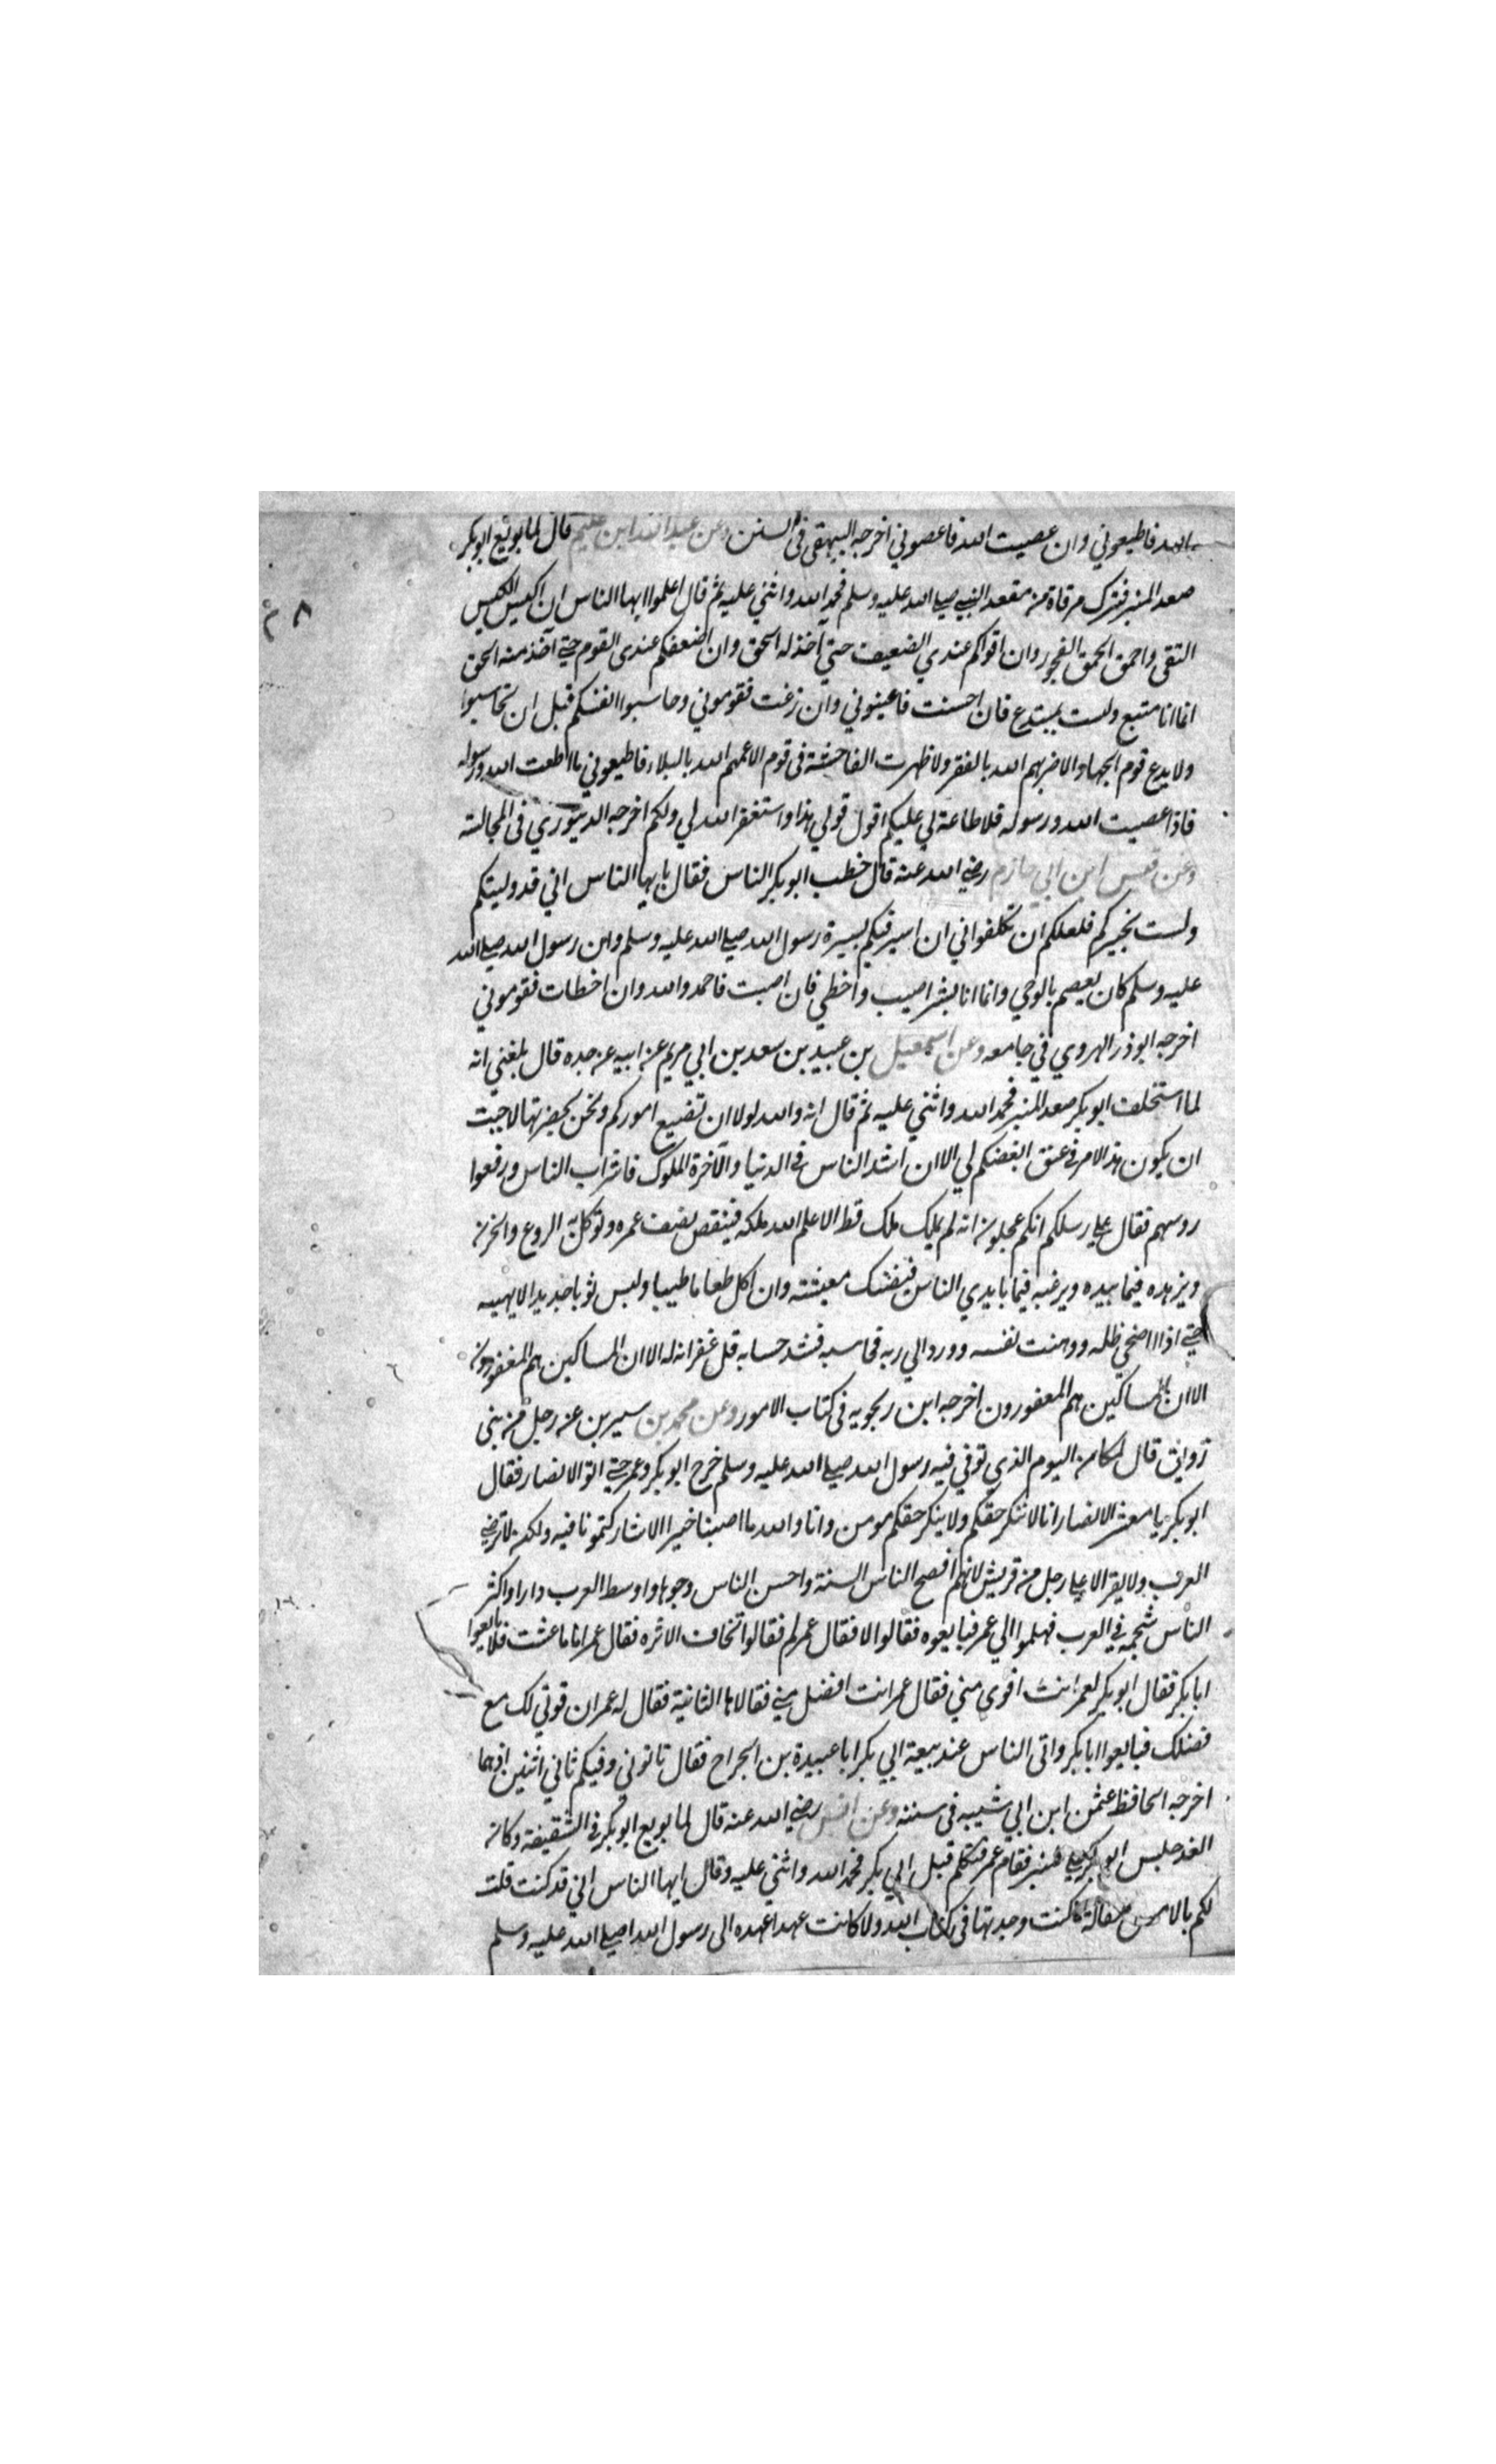 الله فاطيعوني وان عصيت الله فاعصوني اخرجه البيهقي في السنن وعن عبد الله ابن عكيم قال لما بويع ابوبكر
صعد المنبر فنزل مرقاة من مقعد النبي صلي الله عليه وسلم فحمد الله واثني عليه ثم قال اعلموا ايها الناس ان اكيس الكيس
التقي واحمق الحمق الفجور وان اقواكم عندي الضعيف حتي آخذ له الحق وان اضعفكم عندي القوم حتي آخذ منه الحق
انما انا متبع ولست بمبتدع فان احسنت فاعينوني وان زغت فقوموني وحاسبوا انفسكم قبل ان تحاسبوا
ولا يدع قوم الجهاد الا ضربهم الله بالفقر ولا ظهرت الفاحشة في قوم الا عمهم الله بالبلاء فاطيعوني ما اطعت الله ورسوله
فاذا عصيت الله ورسوله فلا طاعة لي عليكم اقول قولي هذا واستغفر الله لي ولكم اخرجه الدينوري في المجالسة
وعن قيس ابن ابي حازم رضي الله عنه قال خطب ابوبكر الناس فقال يايها الناس اني قد وليتكم
ولست بخيركم فلعلكم ان تكلفواني ان اسير فيكم بسيرة رسول الله صلي الله عليه وسلم وان رسول الله صلي الله
عليه وسلم كان يعصم بالوحي وانما انا بشر اصيب واخطي فان اصبت فاحمدوا الله وان اخطات فقوموني
اخرجه ابوذر الهروي في جامعه وعن اسمعيل بن عبيد بن سعد بن ابي مريم عن ابيه عن جده قال بلغني انه
لما استخلف ابوبكر صعد المنبر فحمد الله واثني عليه ثم قال انه والله لولا ان تضيع اموركم ونحن بحضرتها لاحببت
ان يكون هذا الامر في عنق ابغضكم لي الا ان اشد الناس في الدنيا والآخرة الملوك فاشراب الناس ورفعوا
روسهم فقال علي رسلكم انكم عجلون انه لم يملك ملك قط الا علم الله ملكه فينقص نصف عمره وتوكل به الروع والحزن
ويزهده فيما بيده ويرغبه فيما بايدي الناس فيضنك معيشته وان اكل طعاما طيبا ولبس ثوبا جديدا
حتي اذا اضحي ظله ووهنت نفسه وورد الي ربه فحاسبه فشد حسابه قل غفرانه له الا ان المساكين هم المغفورون
الا ان المساكين هم المغفورون اخرجه ابن زنجويه في كتاب الامور وعن محمد بن سيرين عن رجل من بني
زريق قال لما كان من اليوم الذي توفي فيه رسول الله صلي الله عليه وسلم خرج ابوبكر وعمر حتي اتوا الانصار فقال
ابوبكر يا معشر الانصار انا لا ننكر حقكم ولا ينكر حقكم مومن وانا والله ما اصبنا خيرا الا شاركتمونا فيه ولكن لا ترضي
العرب ولا يقر الا علي رجل من قريش لانهم افصح الناس السنة واحسن الناس وجوها واوسط العرب دارا واكثر
الناس شجمة في العرب فهلموا الي عمر فبايعوه فقالوا لا فقال عمر لم فقالوا تخاف الاثره فقال عمر اما ما عشت فلا بايعوا
ابابكر فقال ابوبكر لعمر انت اقوي مني فقال عمر انت افضل مني فقالاها الثانية فقال له عمر ان قوتي لك مع
فضلك فبايعوا ابابكر واتي الناس عند بيعة ابي بكر ابا عبيدة بن الجراح فقال تاتوني وفيكم ثاني اثنين اذ هما
اخرجه الحافظ عثمن ابن ابي شيبه في سننه وعن انس رضي الله عنه قال لما بويع ابوبكر في السقيفة وكان
الغد جلس ابوبكر علي المنبر فقام عمر فتكلم قبل ابي بكر فحمد الله واثني عليه وقال ايها الناس اني قد كنت قلت
لكم بالامس مقالة ما كنت وجدتها في كتاب الله ولا كانت عهدا عهده الي رسول الله صلي الله عليه وسلم